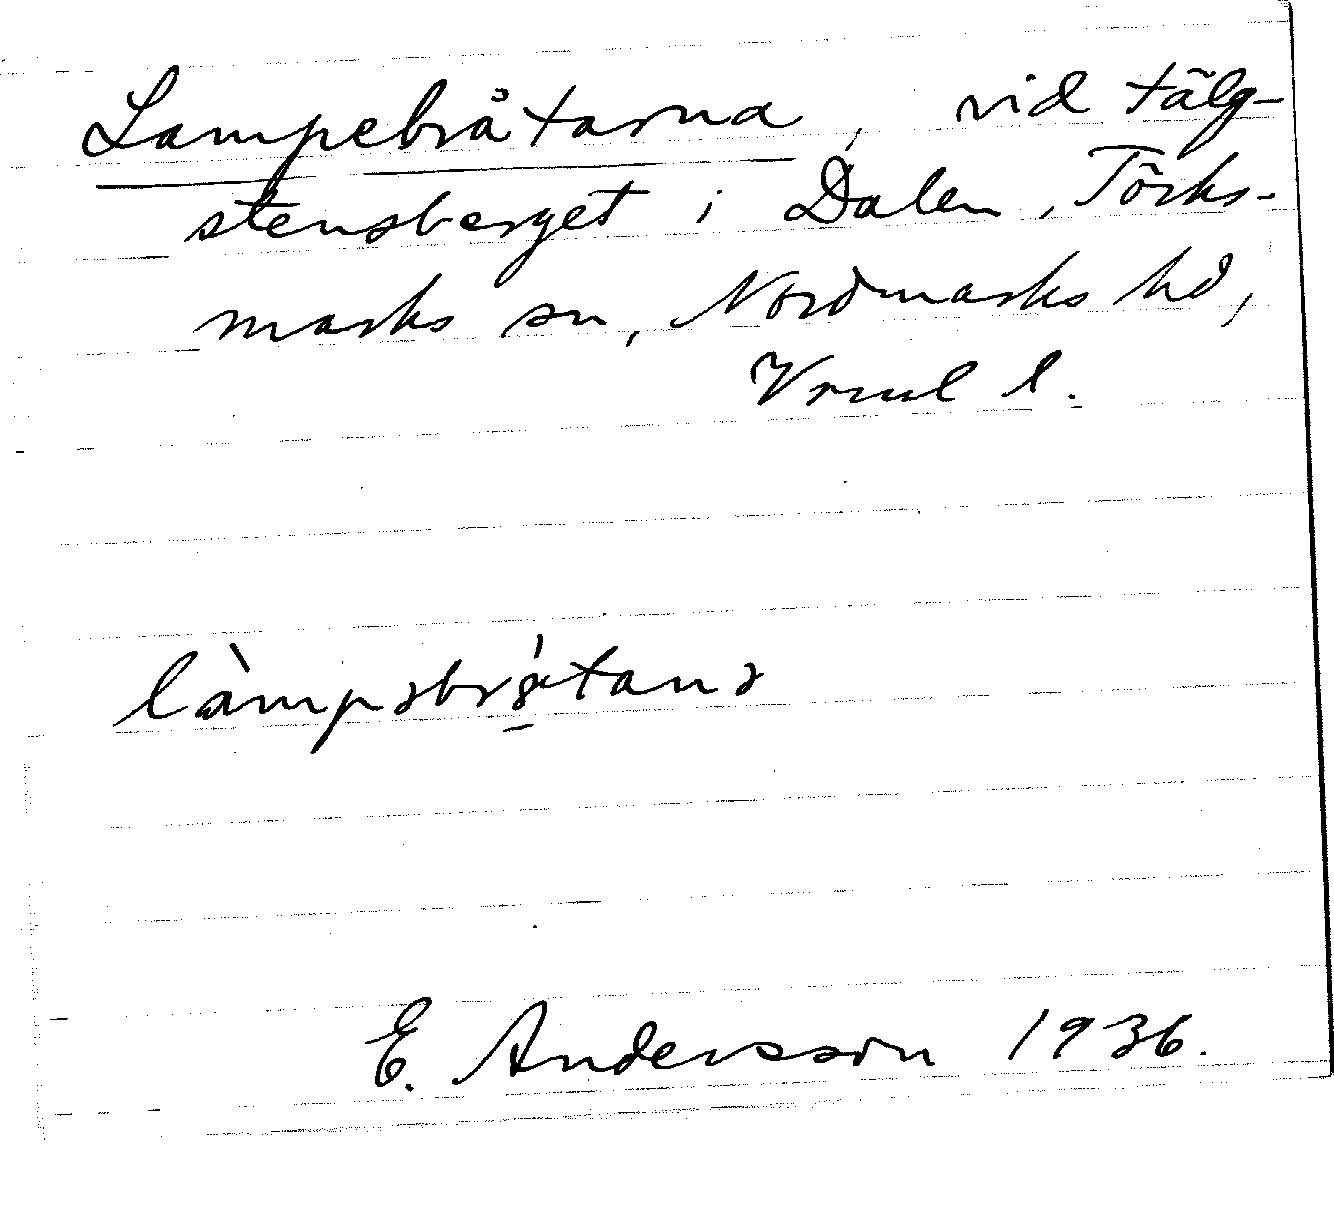 Lampebråtarna, vid tälg-
stensberget i Dalen, Törks-
marks sn, Nordmarks hd,
Vrml l.
làmpəbrå̀tanə
E. Andersson 1936.